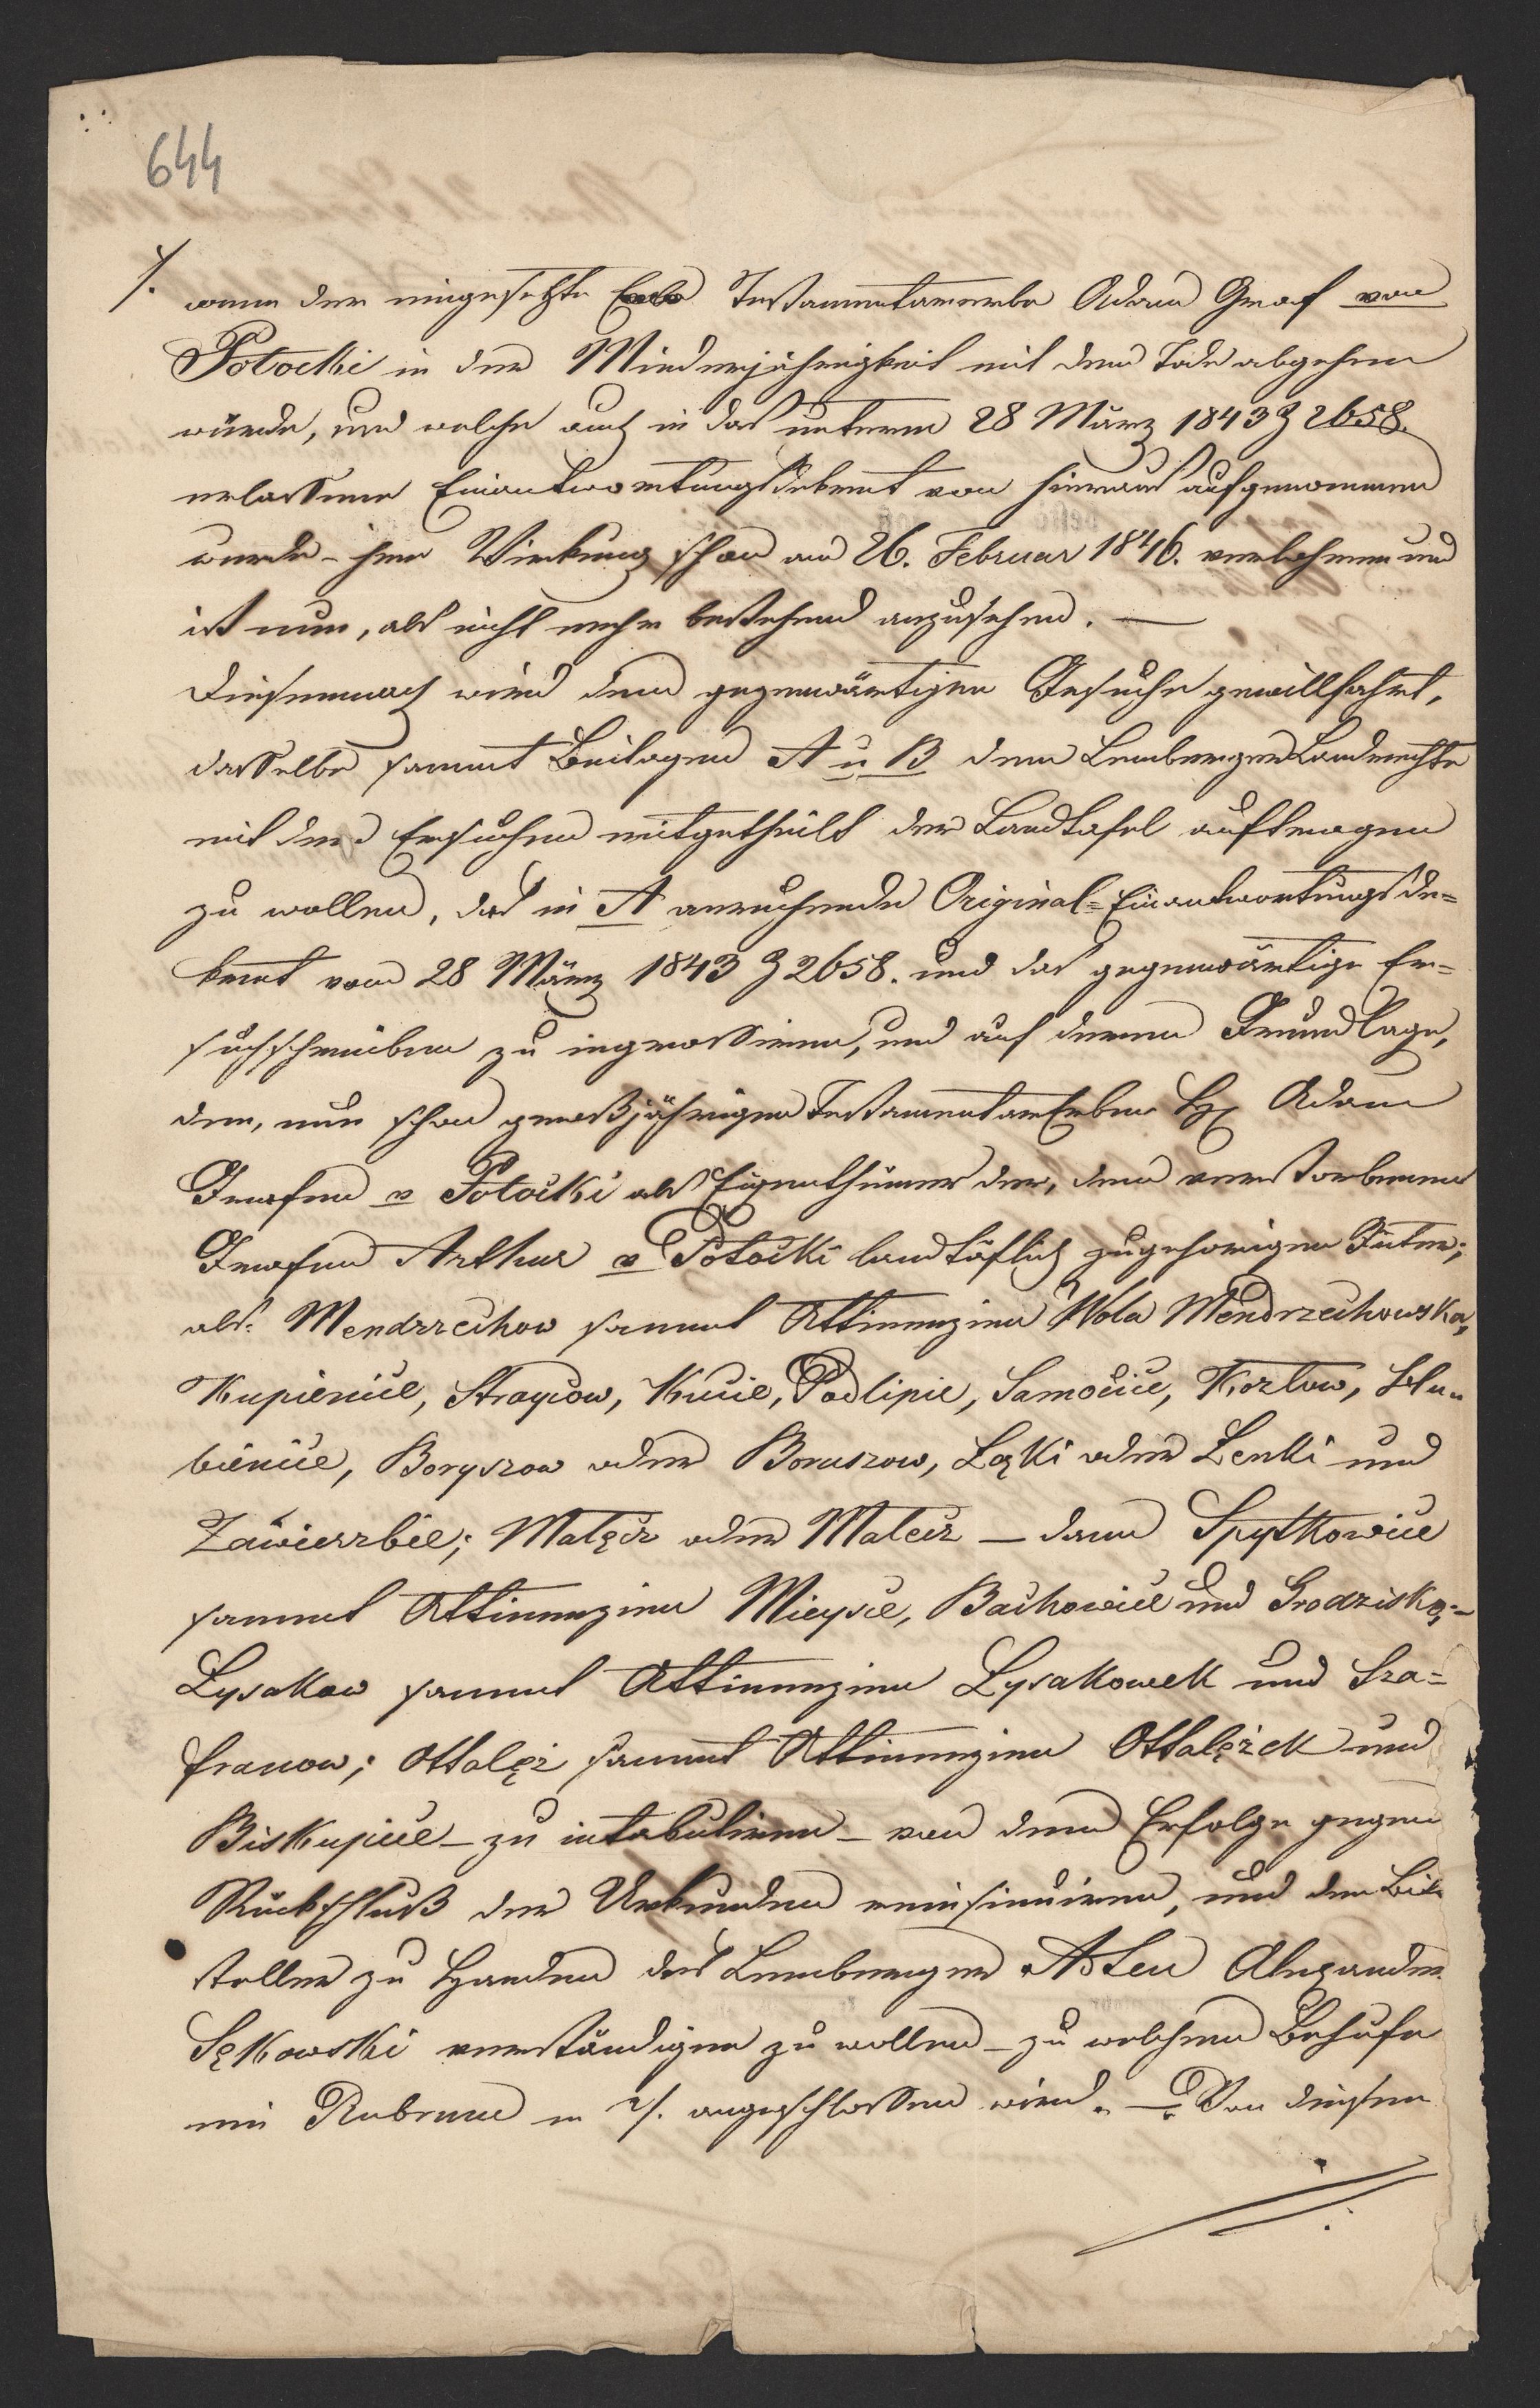 644
/. wenn der eingesetzte Erbe Testamentarerbe Adam Graf von
Potocki in der Minderjährigkeit mit dem Tode abgehen
würde, und welche auch in das unterm 28 März 1843 Z 2658.
erlassene Einantwortungsdekret von hieraus aufgenommen
wurde - ihre Wirkung schon am 26. Februar 1846. verlohren und
ist nun, als nicht mehr bestehend anzusehen. —
Diesemnach wird dem gegenwärtigen Gesuche gewillfahrt,
dasselbe sammt Beilagen A u B dem Lemberger Landrechte
mit dem Ersuchen mitgetheilt der Landtafel auftragen
zu wollen, das in A anruhende Original-Einantwortungsde=
kret vom 28 März 1843 Z 2658. und das gegenwärtige Er=
suchschreiben zu ingrossiren, und auf deren Grundlage,
den, nun schon großjährigen Testamentar Erben H Adam
Grafen v Potocki als Eigenthümer der, dem verstorbenen
Grafen Arthur v Potocki landtäflich zugehörigen Güter;
als: Mendrzechow sammt Attinenzien Wola Mendrzechowska,
Kupienice, Stroyców, Kucie, Podlipie, Samocice, Kozłow,
bienice, Boryszow oder Boruszow, Łąki oder Lenki und
Zawierzbie; Małęcz oder Malecz — dann Spytkowice
sammt Attinenzien Mieysce, Bachowice und Grodzisko;-
Lysakow sammt Attinenzien Lysakowek und Sza=
franow; Ottałęż sammt Attinenzien Ottałężek und
Biskupice - zu intabuliren - von dem Erfolge gegen
Rückschluß der Urkunden reinsinuiren, und den Bitt
steller zu Handen des Lemberger Adten Alexander
Sękowski verständigen zu wollen - zu welchem Behufe
ein Rubrum in 2/. angeschlossen wird. — Von diesem